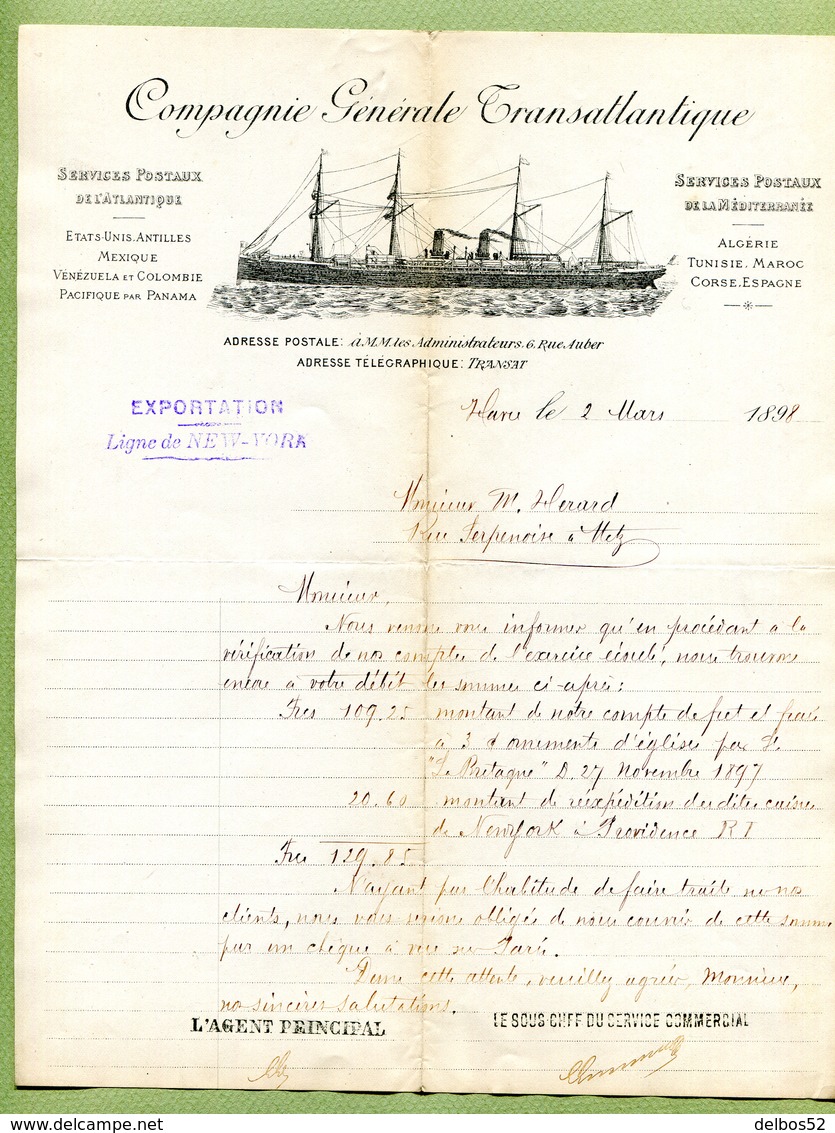 Compagnie Générale Transatlantique
SERVICES POSTAUX
DE L'ATLANTIQUE
ETATS-UNIS. ANTILLES
MEXIQUE
VÉNÉZUELA ET COLOMBIE
PACIFIQUE PAR PANAMA
SERVICES POSTAUX
DE LA MÉDITERRANÉE
ALGÉRIE
TUNISIE. MAROC
CORSE. ESPAGNE
ADRESSE POSTALE: à M.M. les Administrateurs. 6. Rue Auber
ADRESSE TÉLÉGRAPHIQUE: TRANSAT
EXPORTATION
Ligne de NEW-YORK
Havre le 2 Mars 1898
Monsieur M. Herard
Rue Serpenoise à Metz
Monsieur,
Nous venons vous informer qu'en procédant à la
vérification de nos comptes de l'exercice écoulé, nous trouvons
encore à votre débit les sommes ci-après:
Frcs 109.25 montant de notre compte de fret et frais
à 3 d'ornements d'église par St
"La Bretagne" D. 27 Novembre 1897
20.60 montant de réexpédition des dites caisses
de New York à Providence R I
Frcs 129.85
N'ayant pas l'habitude de faire traite sur nos
clients, nous vous serions obligés de nous couvrir de cette somme
par un chèque à vue sur Paris.
Dans cette attente, veuillez agréer, Monsieur,
nos sincères salutations.
L'AGENT PRINCIPAL
LE SOUS-CHEF DU SERVICE COMMERCIAL
delbos52